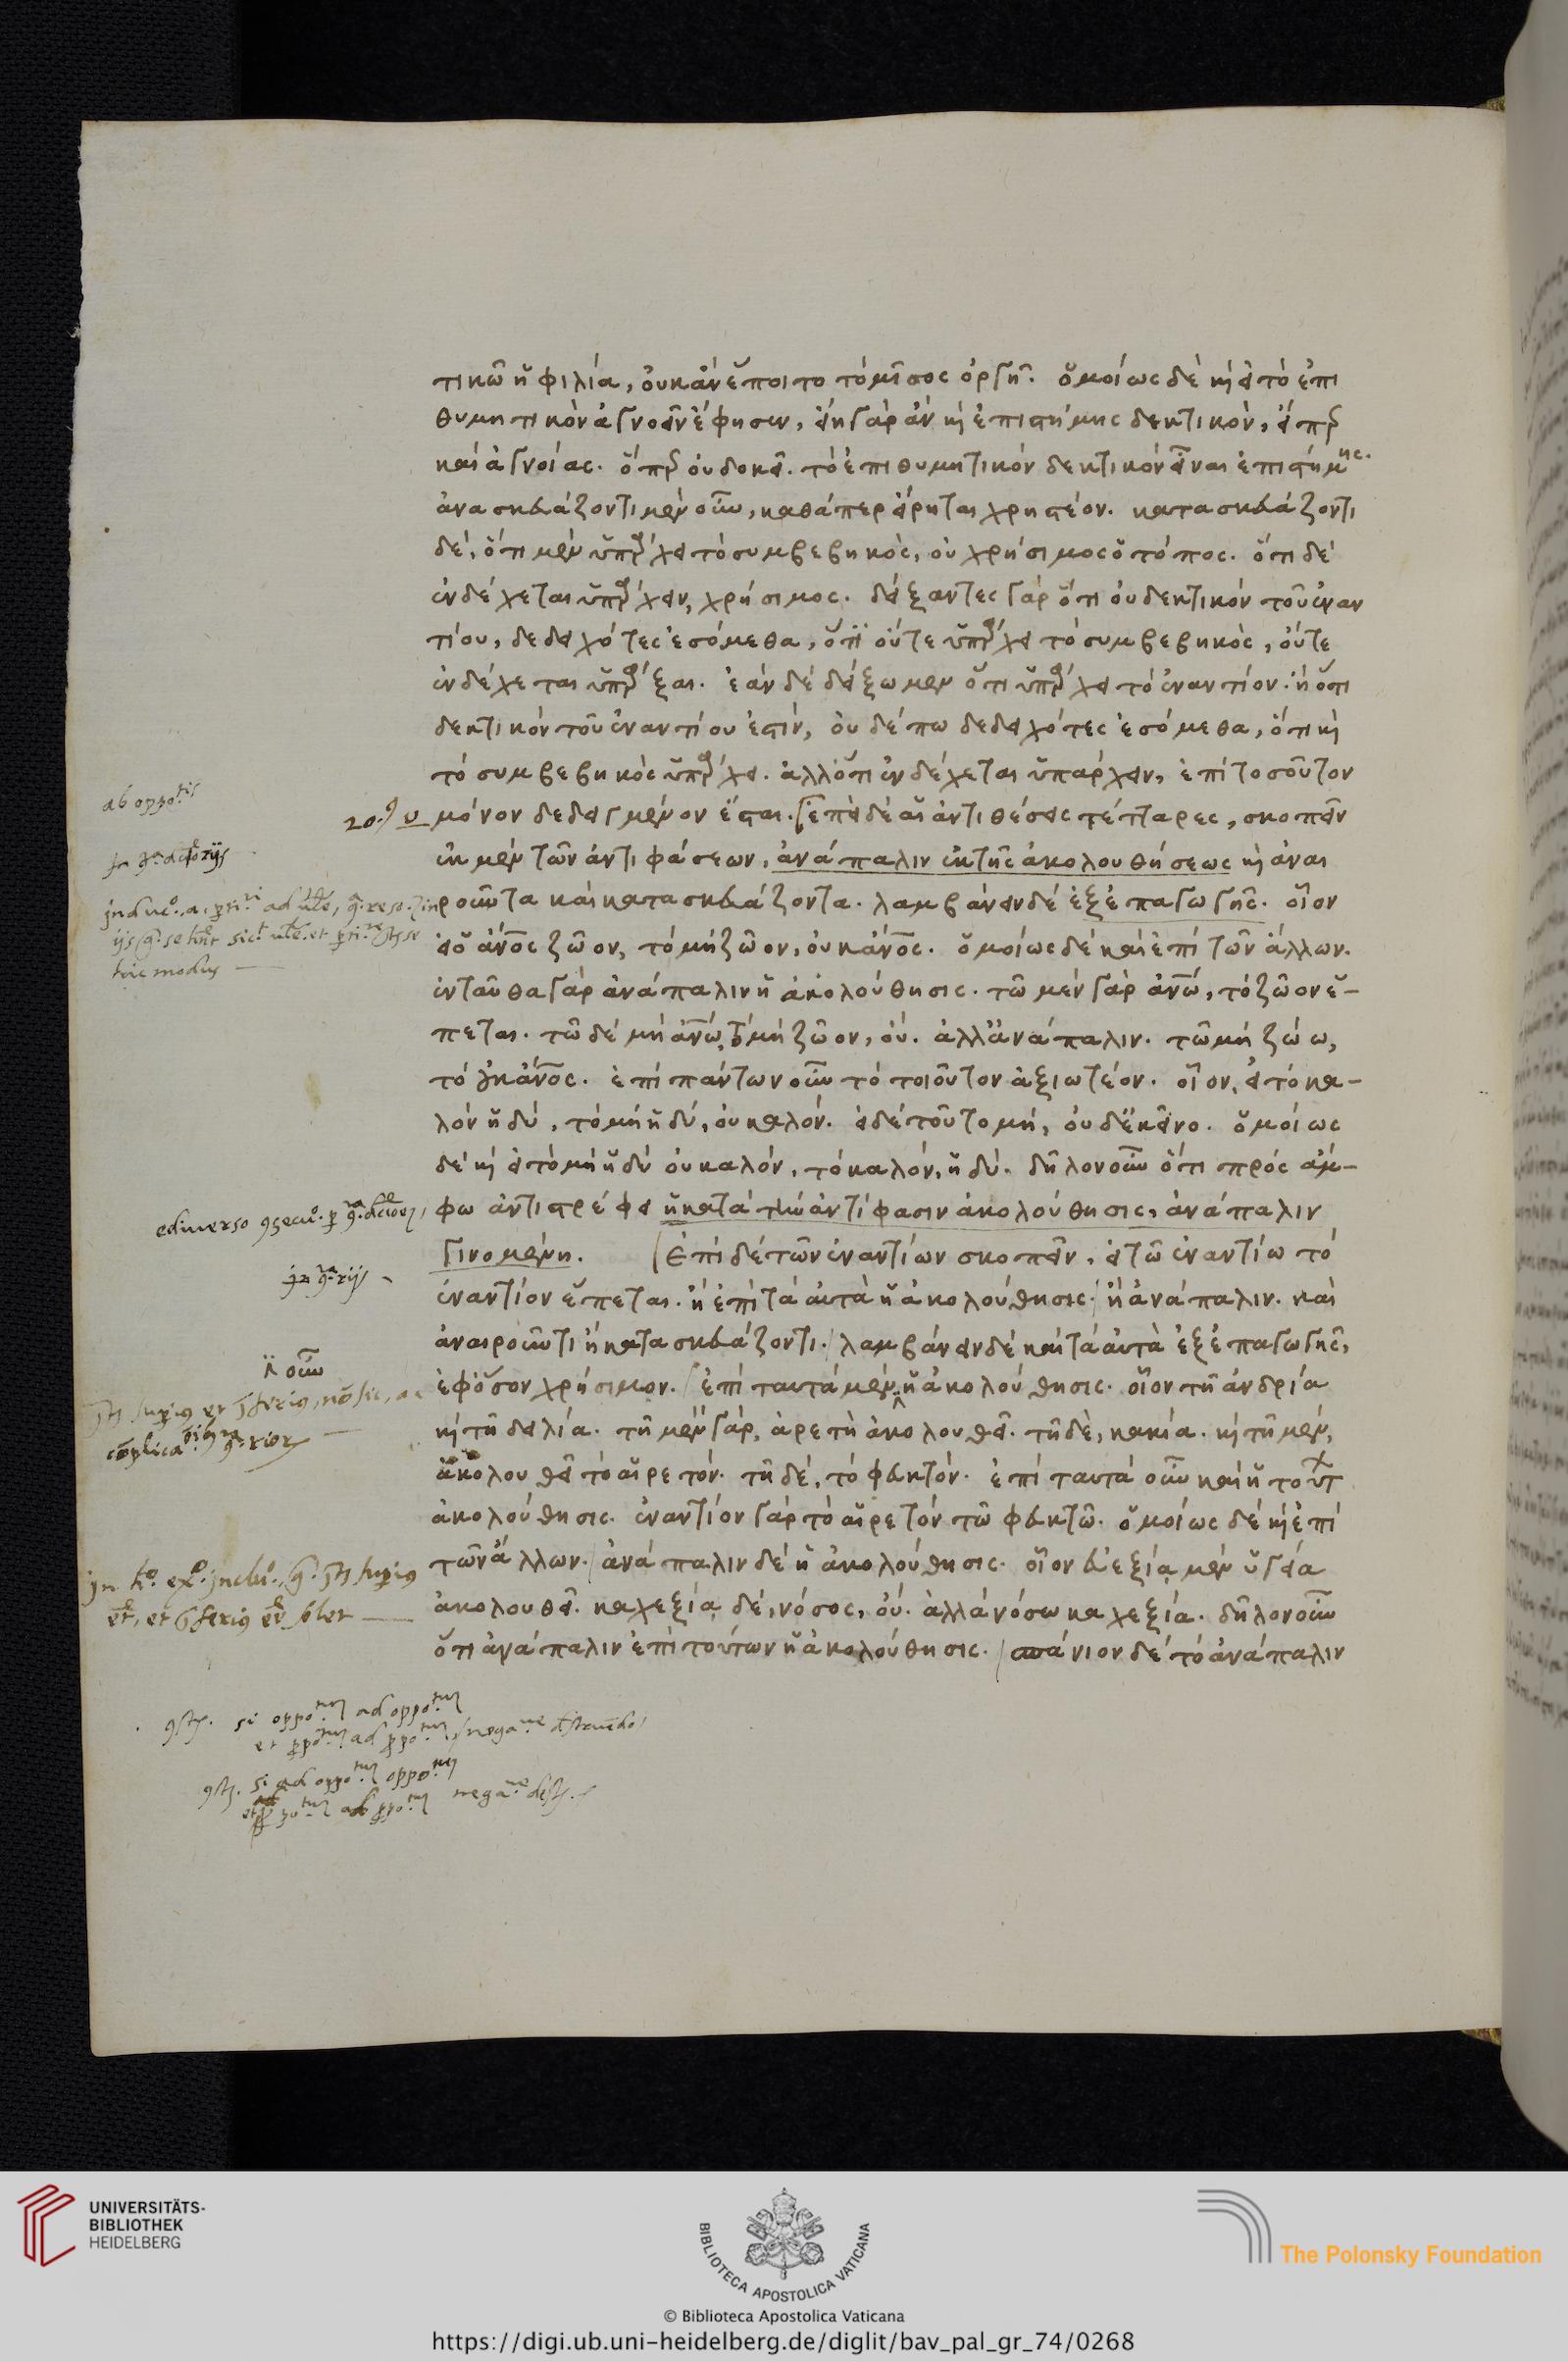 τικῶ ἡ φιλία, οὐκ ἂν ἕποιτο τὸ μῖσος ὀργῇ. ὁμοίως δὲ καὶ εἰ τὸ ἐπι
θυμητικὸν ἀγνοεῖν ἔφησεν, εἴη γὰρ ἂν καὶ ἐπιστήμης δεκτικὸν, εἴπερ
καὶ ἀγνοίας. ὅπερ οὐ δοκεῖ. τὸ ἐπιθυμητικὸν δεκτικὸν εἶναι ἐπιστήμης.
ἀνασκευάζοντι μὲν οὖν, καθάπερ εἴρηται χρηστέον. κατασκευάζοντι
δὲ, ὅτι μὲν ὑπάρχει τὸ συμβεβηκὸς, οὐ χρήσιμος ὁ τόπος. ὅτι δὲ
ἐνδέχεται ὑπάρχειν, χρήσιμος. δείξαντες γὰρ ὅτι οὐ δεκτικὸν τοῦ ἐναν
τίου, δεδειχότες ἐσόμεθα, ὅτι οὔτε ὑπάρχει τὸ συμβεβηκὸς, οὔτε
ἐνδέχεται ὑπάρξαι. ἐὰν δὲ δείξωμεν ὅτι ὑπάρχει τὸ ἐναντίον. ἢ ὅτι
δεκτικὸν τοῦ ἐναντίου ἐστὶν, οὐδέπω δεδειχότες ἐσόμεθα, ὅτι καὶ
τὸ συμβεβηκὸς ὑπάρχει. ἀλλ' ὅτι ἐνδέχεται ὑπάρχειν, ἐπὶ τοσοῦτον
μόνον δεδειγμένον ἔσται. ἐπεὶ δὲ αἱ ἀντιθέσεις τέτταρες, σκοπεῖν
ἐκ μὲν τῶν ἀντιφάσεων, ἀνάπαλιν ἐκ τῆς ἀκολουθήσεως καὶ ἀναι
ροῦντα καὶ κατασκευάζοντα. λαμβάνειν δὲ ἐξ ἐπαγωγῆς. οἷον
εἰ ὁ ἄν͞ος ζῶον, τὸ μὴ ζῶον, οὐκ ἄν͞ος. ὁμοίως δὲ καὶ ἐπὶ τῶν ἄλλων.
ἐνταῦθα γὰρ ἀνάπαλιν ἡ ἀκολούθησις. τῶ μὲν γὰρ ἀν͞ω, τὸ ζῶον ἕ-
πεται. τῶ δὲ μὴ ἀν͞ω, τὸ μὴ ζῶον, οὔ. ἀλλ' ἀνάπαλιν. τῶ μὴ ζώω,
τὸ οὐκ ἄν͞ος. ἐπὶ πάντων οὖν τὸ τοιοῦτον ἀξιωτέον. οἷον, εἰ τὸ κα-
λὸν ἡδὺ, τὸ μὴ ἡδὺ, οὐ καλόν. εἰ δὲ τοῦτο μὴ, οὐδ' ἐκεῖνο. ὁμοίως
δὲ καὶ εἰ τὸ μὴ ἡδὺ οὐ καλόν, τὸ καλόν, ἡδύ. δῆλον οὖν ὅτι πρὸς ἄμ-
φω ἀντιστρέφει ἡ κατὰ τὴν ἀντίφασιν ἀκολούθησις, ἀνάπαλιν
γινομένη. Ἐπὶ δὲ τῶν ἐναντίων σκοπεῖν, εἰ τῶ ἐναντίω τὸ
ἐναντίον ἕπεται. ἢ ἐπὶ τὰ αὐτὰ ἡ ἀκολούθησις. ἢ ἀνάπαλιν. καὶ
ἀναιροῦντι ἢ κατασκευάζοντι. λαμβάνειν δὲ καὶ τὰ αὐτὰ ἐξ ἐπαγωγῆς,
ἐφ' ὅσον χρήσιμον. ἐπὶ ταυτὰ μὲν ἡ ἀκολούθησις. οἷον τῆ ἀνδρία
καὶ τῆ δειλία. τῆ μὲν γὰρ, ἀρετὴ ἀκολουθεῖ. τῆ δὲ, κακία. καὶ τῆ μὲν,
ἀκολουθεῖ τὸ αἱρετόν. τῆ δὲ, τὸ φευκτόν. ἐπὶ ταυτὰ οὖν καὶ ἡ τούτ
ἀκολούθησις. ἐναντίον γὰρ τὸ αἱρετὸν τῶ φευκτῶ. ὁμοίως δὲ καὶ ἐπὶ
τῶν ἄλλων. ἀνάπαλιν δὲ ἡ ἀκολούθησις. οἷον εὐεξία μὲν ὑγεία
ἀκολουθεῖ. καχεξία δὲ, νόσος, οὔ. ἀλλὰ νόσω καχεξία. δῆλον οὖν
ὅτι ἀνάπαλιν ἐπὶ τούτων ἡ ἀκολούθησις. σπάνιον δὲ τὸ ἀνάπαλιν
ab oppotis
20.
hic modus
ἢ οὖν
UNIVERSITÄTS-
BIBLIOTHEK
HEIDELBERG
BIBLIOTECA APOSTOLICA VATICANA
The Polonsky Foundation
© Biblioteca Apostolica Vaticana
https://digi.ub.uni-heidelberg.de/diglit/bav_pal_gr_74/0268